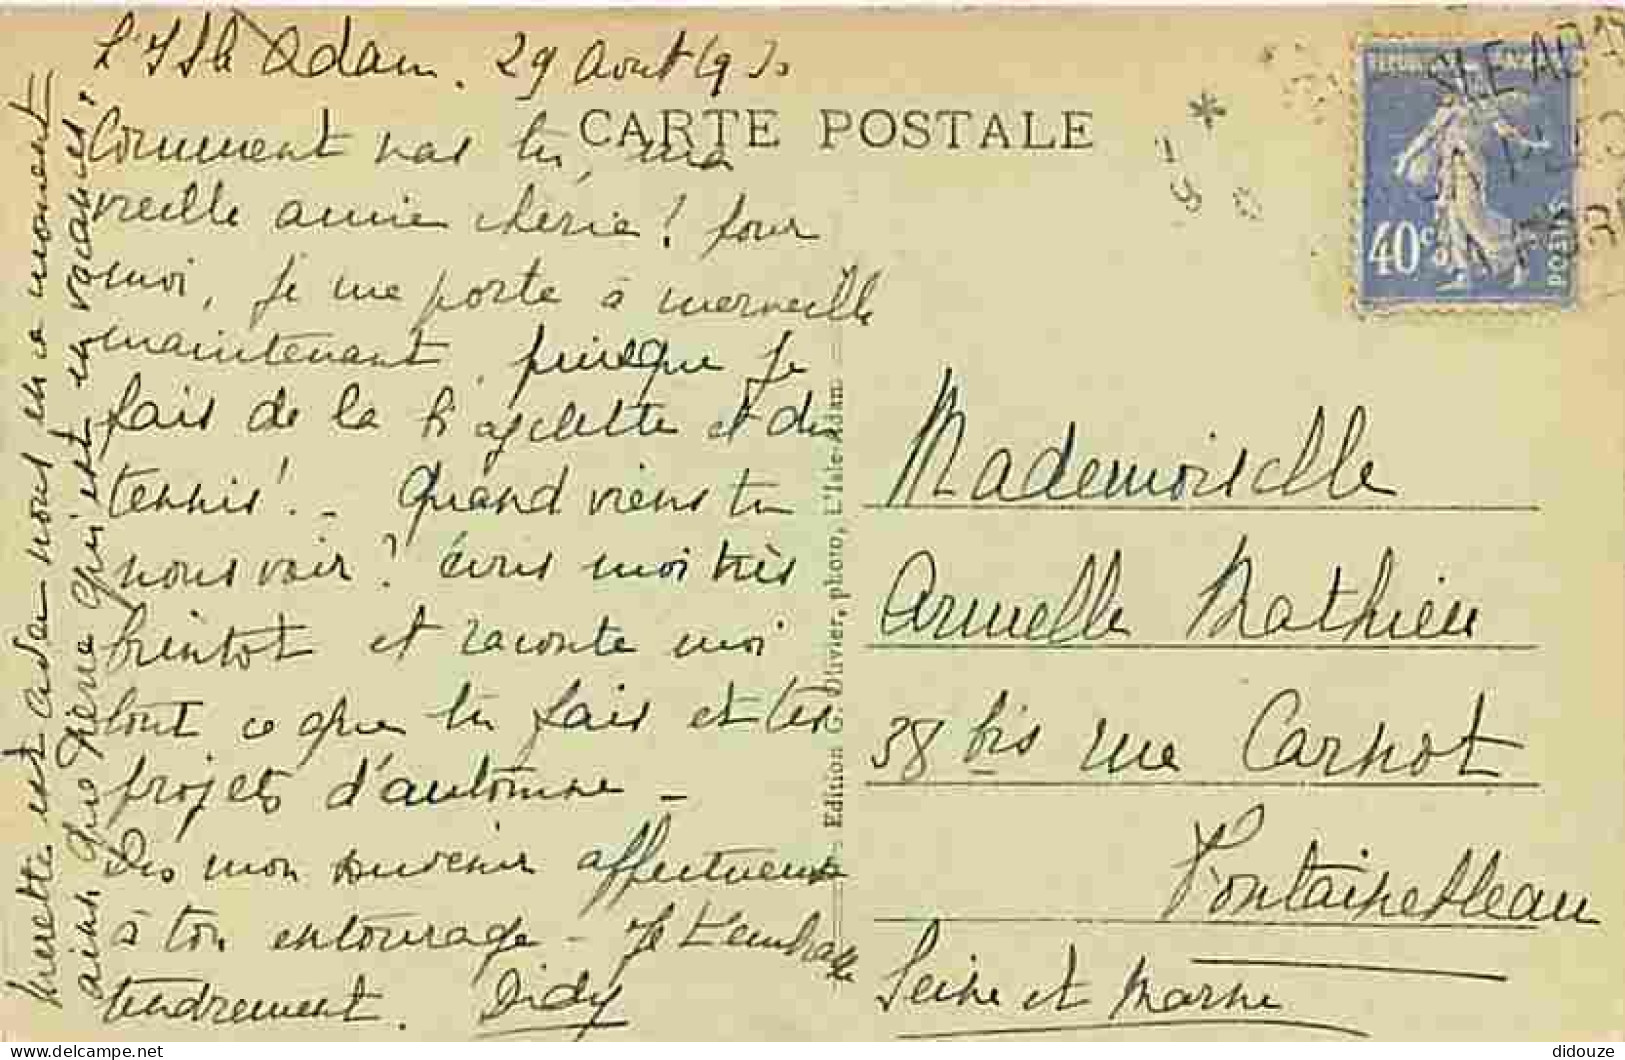 L'Isle Adam. 29 Août 1930
CARTE POSTALE
Comment vas tu, ma
vieille amie chérie ! Pour
moi, je me porte à merveille
maintenant, puisque je
fais de la bicyclette et du
tennis ! - Quand viens tu
nous voir ? écris moi très
bientôt et raconte moi
tout ce que tu fais et tes
projets d'automne -
Dis mon souvenir affectueux
à ton entourage - Je t'embrasse
tendrement. Didy
est chez nous en ce moment
ainsi que Pierre qui est en vacances !
Edition G. Olivier, photo, L'Isle-Adam
REPUBLIQUE FRANÇAISE
40c
POSTES
Mademoiselle
Armelle Mathieu
38 bis rue Carnot
Fontainebleau
Seine et Marne
didouze